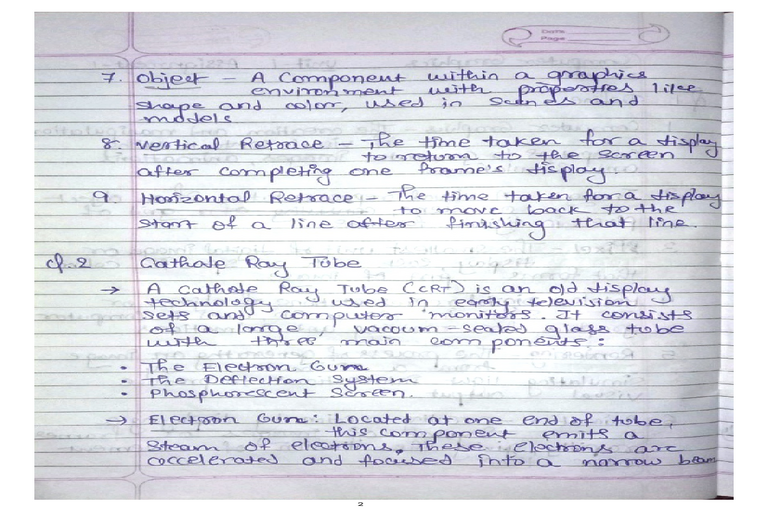 Date
Page
7. Object - A Component within a graphics
environment with properties like
shape and color, used in scends and
models
8. Vertical Retrace - The time taken for a display
to return to the screen
after completing one frame's display
9 Horizontal Retrace - The time taken for a display
to move back to the
start of a line after finishing that line.
Q.2 Cathode Ray Tube
→ A Cathode Ray Tube (CRT) is an old display
technology used in early television
sets and computer monitors. It consists
of a large, vaccum-sealed glass tube
with three main components:
• The Electron Gun
• The Deflection System
• Phosphorescent Screen.
→ Electron Gun: Located at one end of tube,
this component emits a
steam of electrons. These electrons are
accelerated and focused into a narrow beam
2